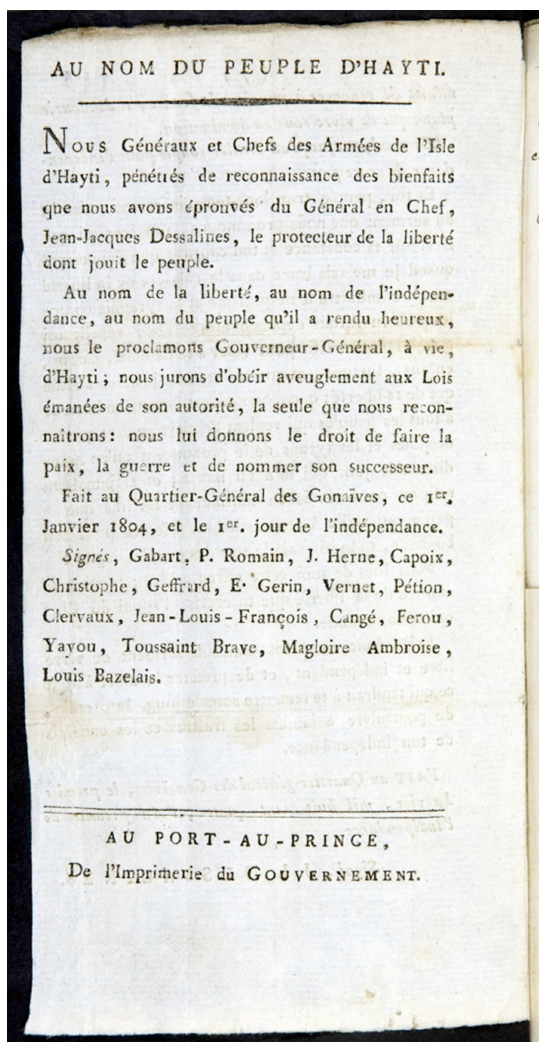 AU NOM DU PEUPLE D'HAYTI.
Nous Généraux et Chefs des Armées de l'Isle
d'Hayti, pénétiés de reconnaissance des bienfaits
que nous avons éprouvés du Général en Chef,
Jean-Jacques Dessalines, le protecteur de la liberté
dont jouit le peuple.
Au nom de la liberté, au nom de l'indépen-
dance, au nom du peuple qu'il a rendu heureux,
nous le proclamons Gouverneur-Général, à vie,
d'Hayti; nous jurons d'obéir aveuglement aux Lois
émanées de son autorité, la seule que nous recon-
naîtrons: nous lui donnons le droit de faire la
paix, la guerre et de nommer son successeur.
Fait au Quartier-Général des Gonaïves, ce 1er.
Janvier 1804, et le 1er. jour de l'indépendance.
Signés, Gabart, P. Romain, J. Herne, Capoix,
Christophe, Geffrard, E. Gerin, Vernet, Pétion,
Clervaux, Jean-Louis-François, Cangé, Ferou,
Yayou, Toussaint Brave, Magloire Ambroise,
Louis Bazelais.
AU PORT-AU-PRINCE,
De l'Imprimerie du GOUVERNEMENT.